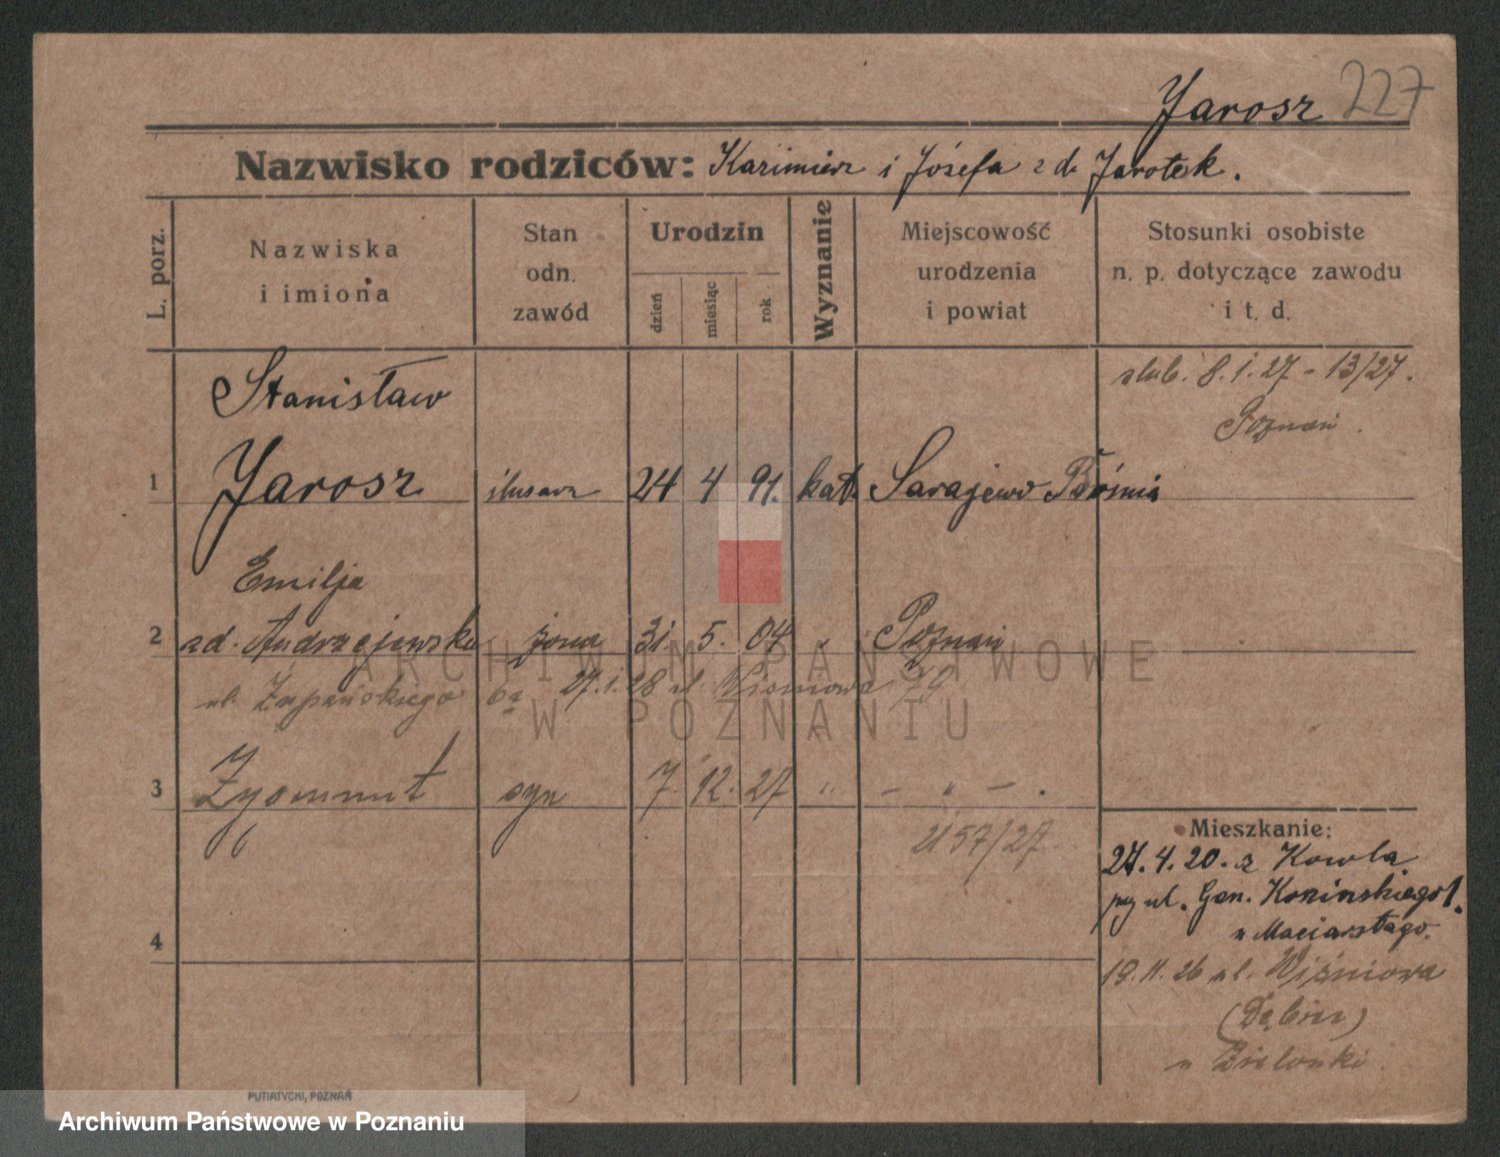 Jarosz 227
Nazwisko rodziców: Kazimierz i Józefa z d. Jarotek.
L. porz.
Nazwiska
i imiona
Stan
odn.
zawód
Urodzin
dzień
miesiąc
rok
Wyznanie
Miejscowość
urodzenia
i powiat
Stosunki osobiste
n. p. dotyczące zawodu
i t. d.
ślub. 8.1.27 - 13/27.
Poznań.
Stanisław
1 Jarosz ślusarz 24 4 91. kat. Sarajewo Bośnia
Emilja
2 zd. Andrzejewska żona 31. 5. 04 " Poznań
ul. Żupańskiego 6a 27.1.28 ul Wiśniowa 79
3 Zygmunt syn 7. 12. 27 " - " - .
57/27.
4
Mieszkanie:
27.4.20. z Kowla
przy ul. Gen. Kosińskiego 1.
u Maciasztago.
19.11.26 ul. Wiśniowa
(Dębiec)
u Zielonki.
PUTIATYCKI, POZNAŃ
ARCHIWUM PAŃSTWOWE
W POZNANIU
Archiwum Państwowe w Poznaniu